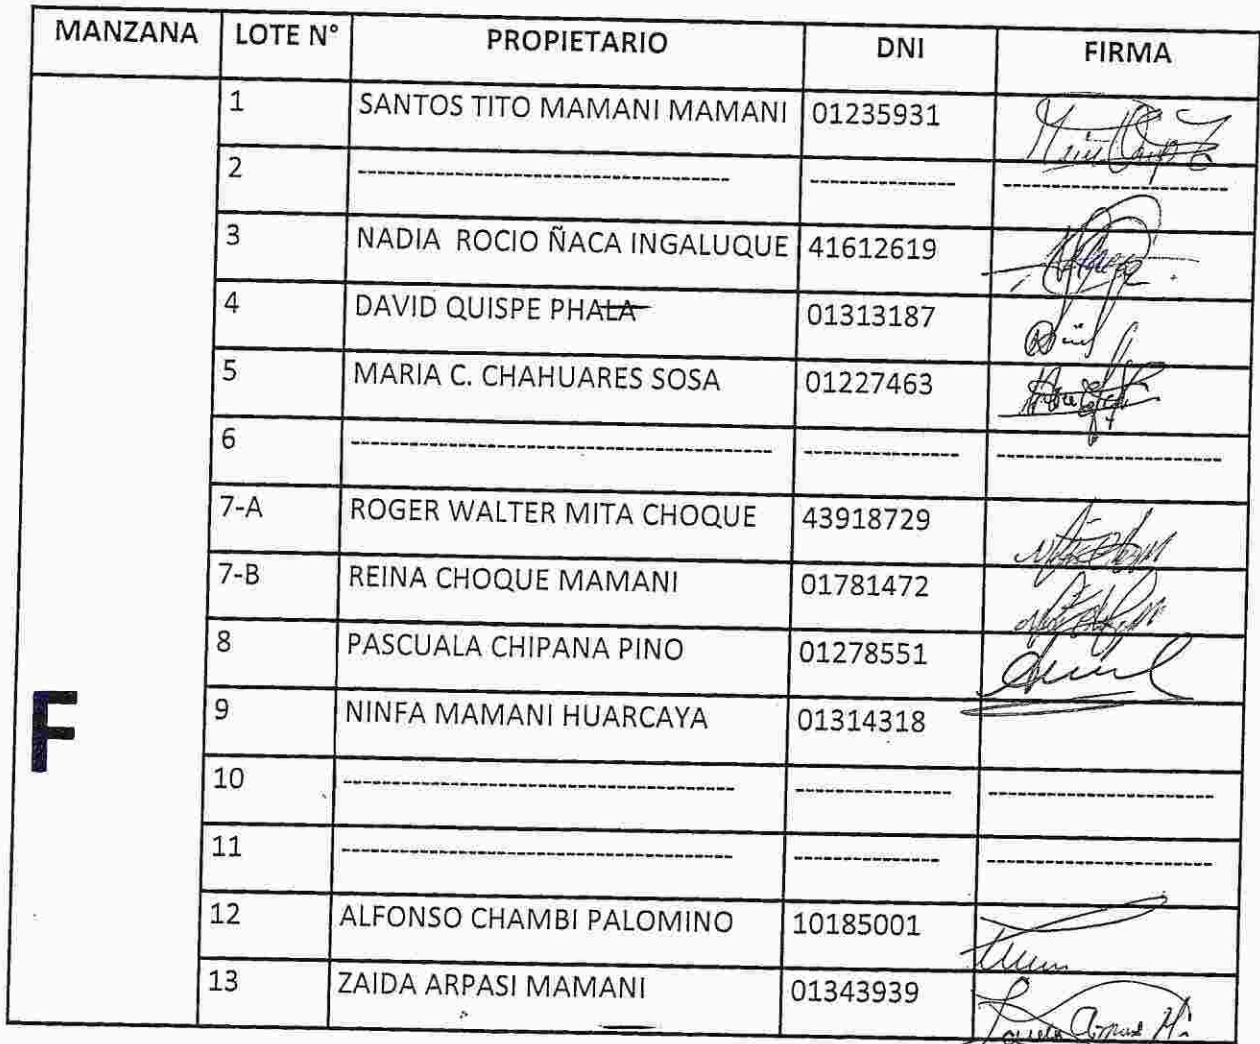 MANZANA LOTE N° PROPIETARIO DNI FIRMA
1 SANTOS TITO MAMANI MAMANI 01235931
2 ------------------------------------ --------------- -----------------------
3 NADIA ROCIO ÑACA INGALUQUE 41612619
4 DAVID QUISPE PHALA 01313187
5 MARIA C. CHAHUARES SOSA 01227463
6 ---------------------------------------- --------------- -----------------------
7-A ROGER WALTER MITA CHOQUE 43918729
7-B REINA CHOQUE MAMANI 01781472
8 PASCUALA CHIPANA PINO 01278551
F 9 NINFA MAMANI HUARCAYA 01314318
10 -------------------------------------- --------------- -----------------------
11 -------------------------------------- -------------- -----------------------
12 ALFONSO CHAMBI PALOMINO 10185001
13 ZAIDA ARPASI MAMANI 01343939